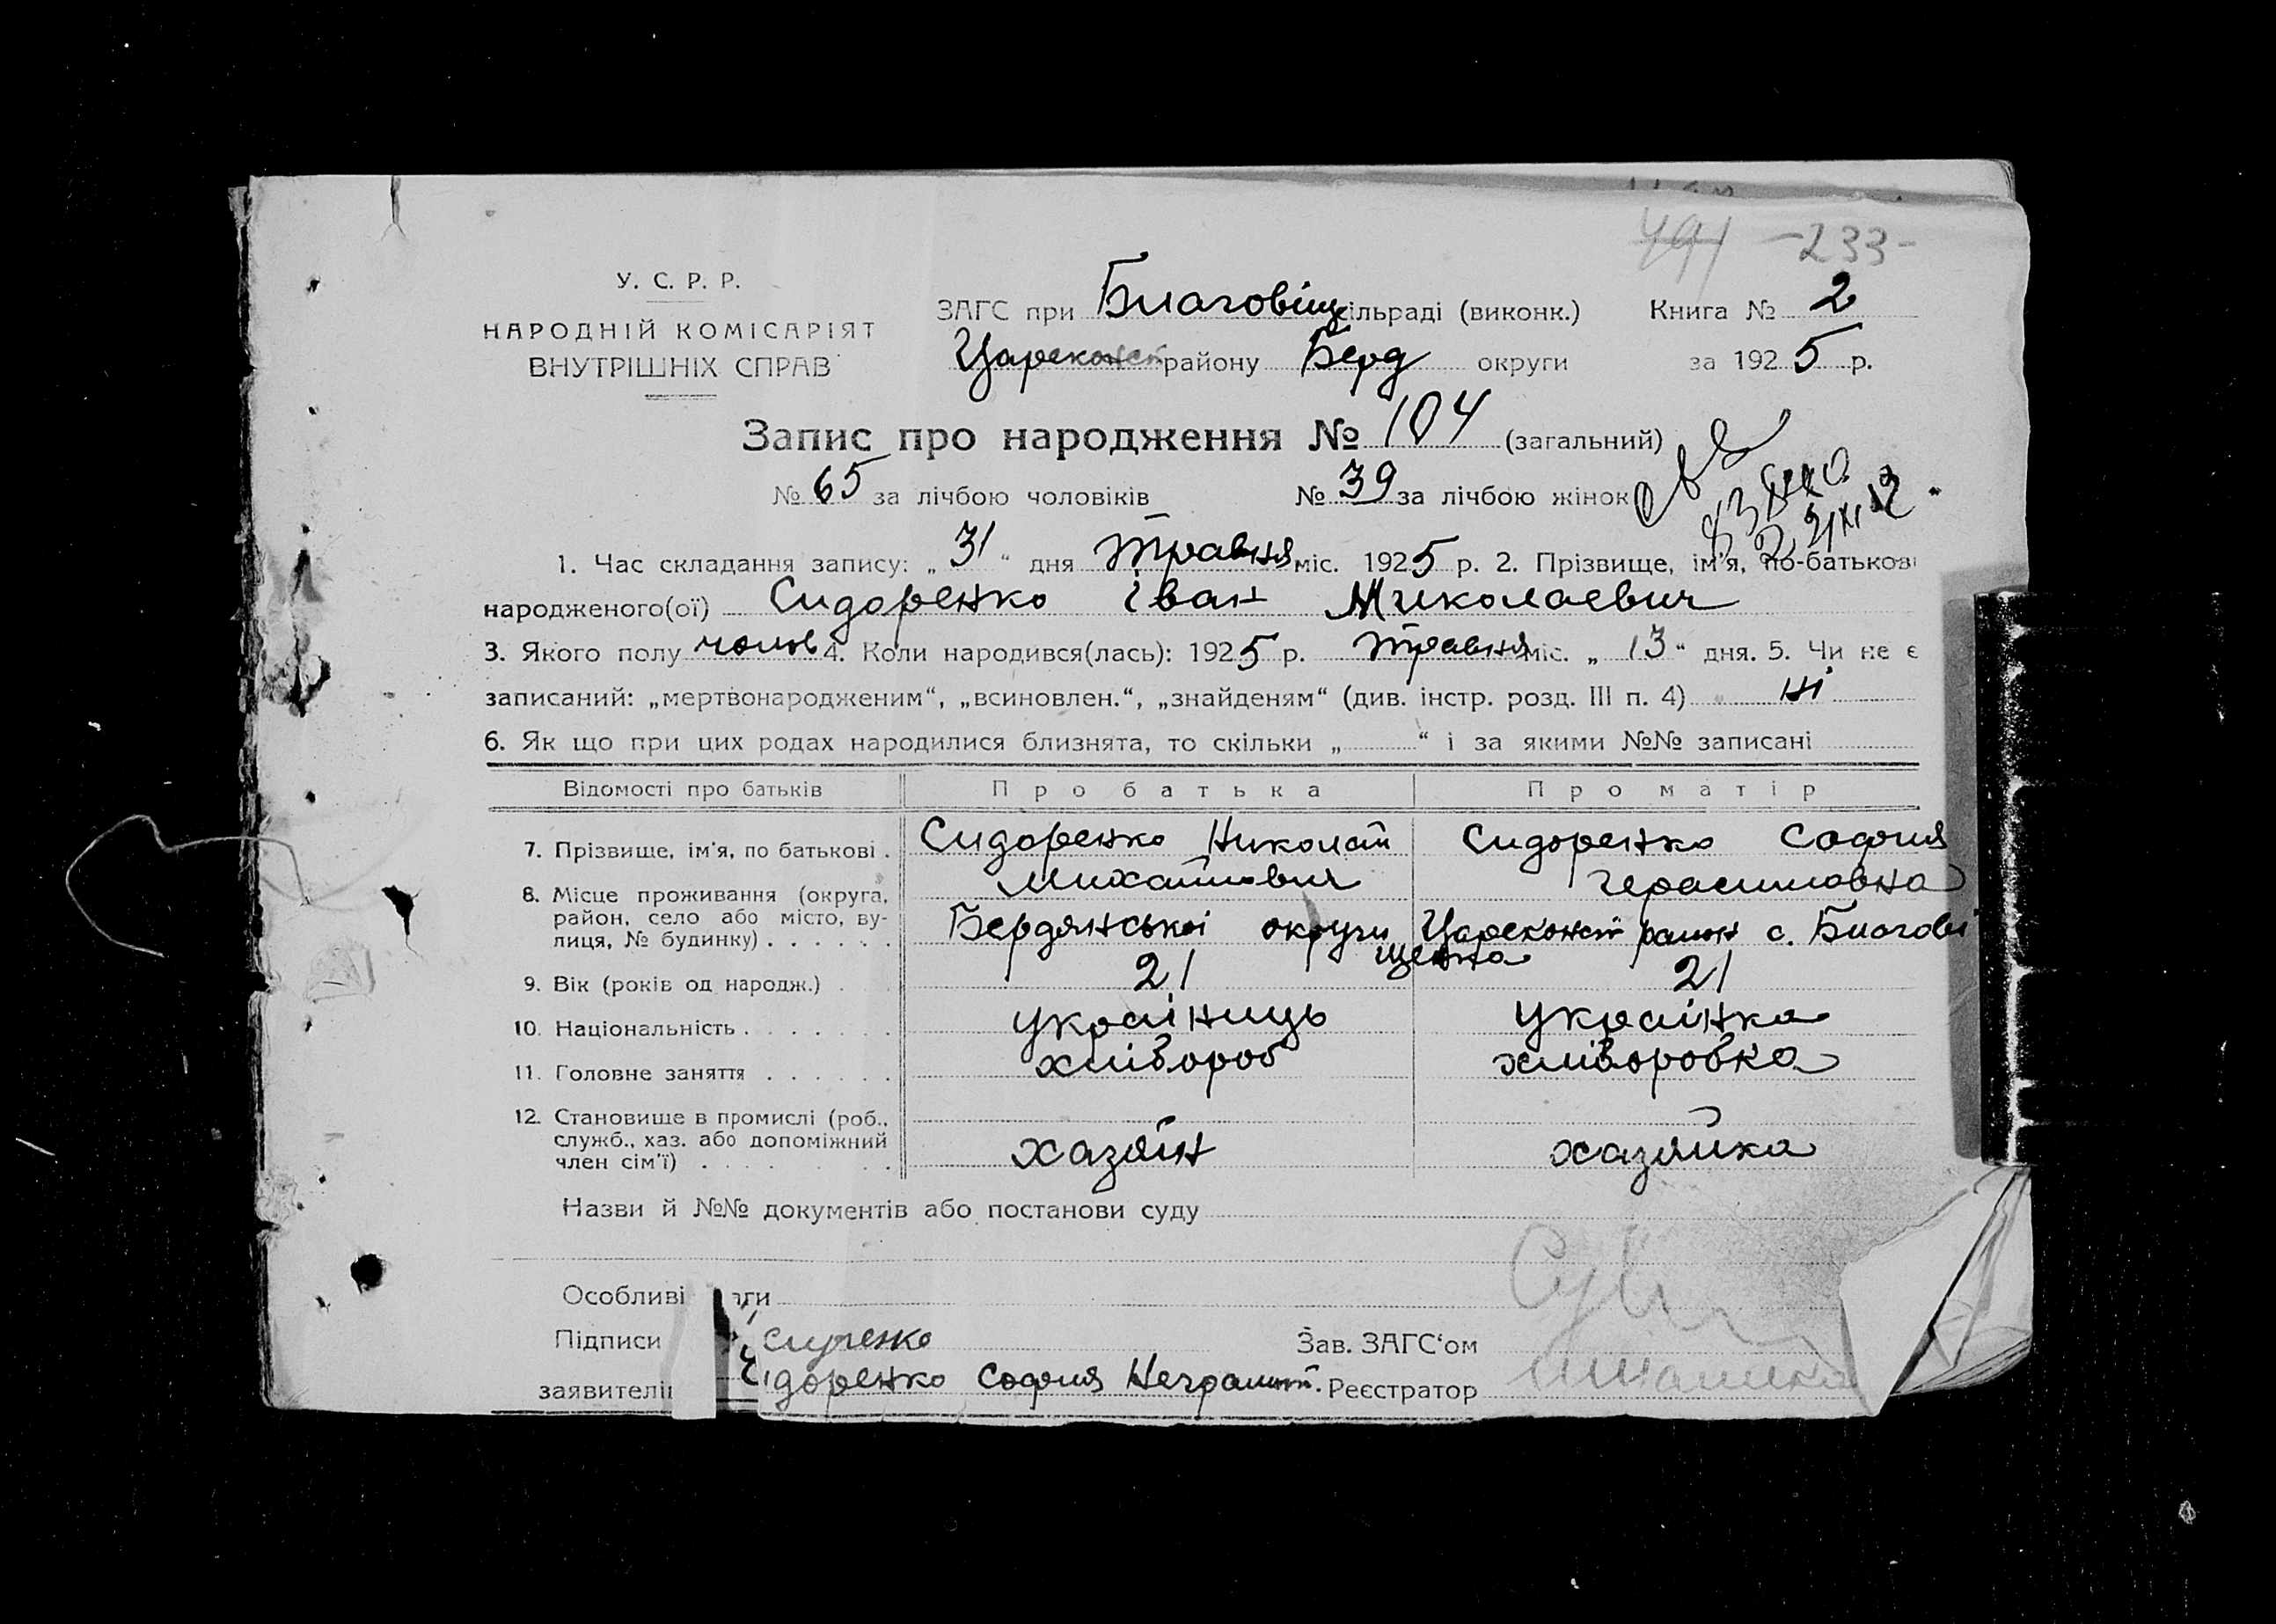 491 -233-
У. С. Р. Р.
НАРОДНІЙ КОМІСАРІЯТ
ВНУТРІШНІХ СПРАВ
ЗАГС при Благовіщ сільраді (виконк.) Книга № 2
Царекон району Берд округи за 1925 р.
Запис про народження № 104 (загальний)
№ 65 за лічбою чоловіків № 39 за лічбою жінок
1. Час складання запису: „31“ дня травня міс. 1925 р. 2. Прізвище, ім'я, по-батькові
народженого(ої) Сидоренко іван Миколаевич
3. Якого полу чолов 4. Коли народився(лась): 1925 р. травня міс. „13“ дня. 5. Чи не є
записаний: „мертвонародженим“, „всиновлен.“, „знайденям“ (див. інстр. розд. III п. 4) ні
6. Як що при цих родах народилися близнята, то скільки „ “ і за якими №№ записані
Відомості про батьків Про батька Про матір
7. Прізвище, ім'я, по батькові . Сидоренко Николай Михайлович Сидоренко София Герасимовна
8. Місце проживання (округа,
район, село або місто, ву-
лиця, № будинку) . . . . . . Бердянськоі округи Цареконст район с. Благовіщенка
9. Вік (років од народж.) . . 21 21
10. Національність . . . . . . . украіниць украінка
11. Головне заняття . . . . . . хлібороб хліборобка
12. Становище в промислі (роб.,
служб., хаз. або допоміжний
член сім'ї) . . . . . . . хазяін хазяйка
Назви й №№ документів або постанови суду
Особливі
Підписи Зав. ЗАГС‘ом
заявителі Сидоренко София Неграмот. Реєстратор